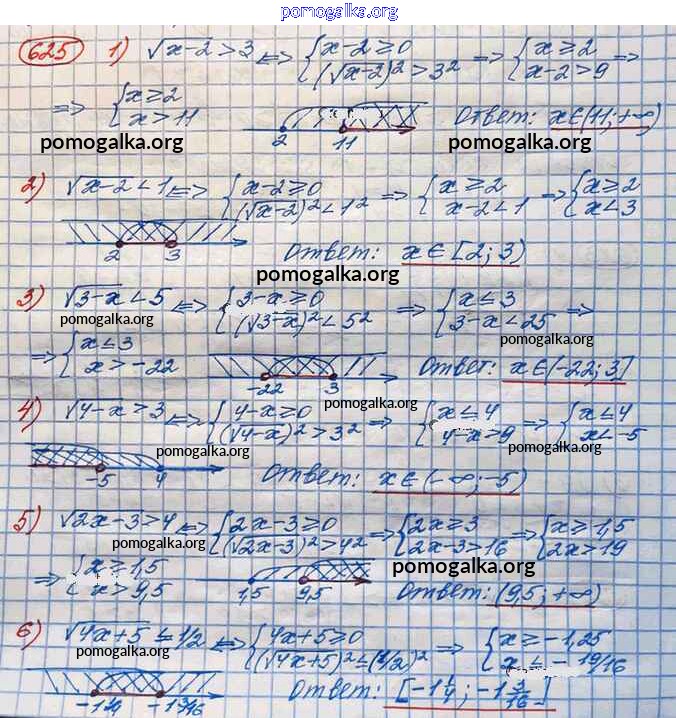 pomogalka.org
625 1) √x-2 > 3 <=> { x-2 ≥ 0 (√x-2)² > 3² => { x ≥ 2 x-2 > 9 =>
=> { x ≥ 2 x > 11 2 11 Ответ: x∈(11; +∞)
pomogalka.org pomogalka.org
2) √x-2 < 1 <=> { x-2 ≥ 0 (√x-2)² < 1² => { x ≥ 2 x-2 < 1 => { x ≥ 2 x < 3
2 3 Ответ: x ∈ [2; 3)
pomogalka.org
3) √3-x < 5 <=> { 3-x ≥ 0 (√3-x)² < 5² => { x ≤ 3 3-x < 25 =>
pomogalka.org pomogalka.org
=> { x ≤ 3 x > -22 -22 3 Ответ: x∈(-22; 3]
pomogalka.org
4) √4-x > 3 <=> { 4-x ≥ 0 (√4-x)² > 3² => { x ≤ 4 4-x > 9 => { x ≤ 4 x < -5
pomogalka.org pomogalka.org
-5 4 Ответ: x∈(-∞; -5)
5) √2x-3 > 4 <=> { 2x-3 ≥ 0 (√2x-3)² > 4² => { 2x ≥ 3 2x-3 > 16 => { x ≥ 1,5 2x > 19
pomogalka.org pomogalka.org
=> { x ≥ 1,5 x > 9,5 1,5 9,5 Ответ: (9,5; +∞)
6) √4x+5 ≤ 1/2 <=> { 4x+5 ≥ 0 (√4x+5)² ≤ (1/2)² => { x ≥ -1,25 x ≤ - 19/16
pomogalka.org pomogalka.org
-1 1/4 -1 3/16 Ответ: [-1 1/4; -1 3/16]